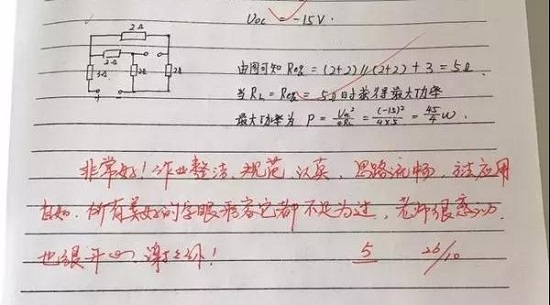 Uoc = -15V.
2Ω
2Ω
3Ω
2Ω
2Ω
由图可知 Req = (2+2)//(2+2)+3 = 5Ω.
当 RL = Req = 5Ω时获得最大功率
最大功率为 P = Uoc²/4RL = (-15)²/4×5 = 45/4 W.
非常好！作业整洁，规范，认真，思路流畅，方法应用
自如，所有美好的字眼形容它都不足为过，老师很感动，
也很开心，谢
5 26/10